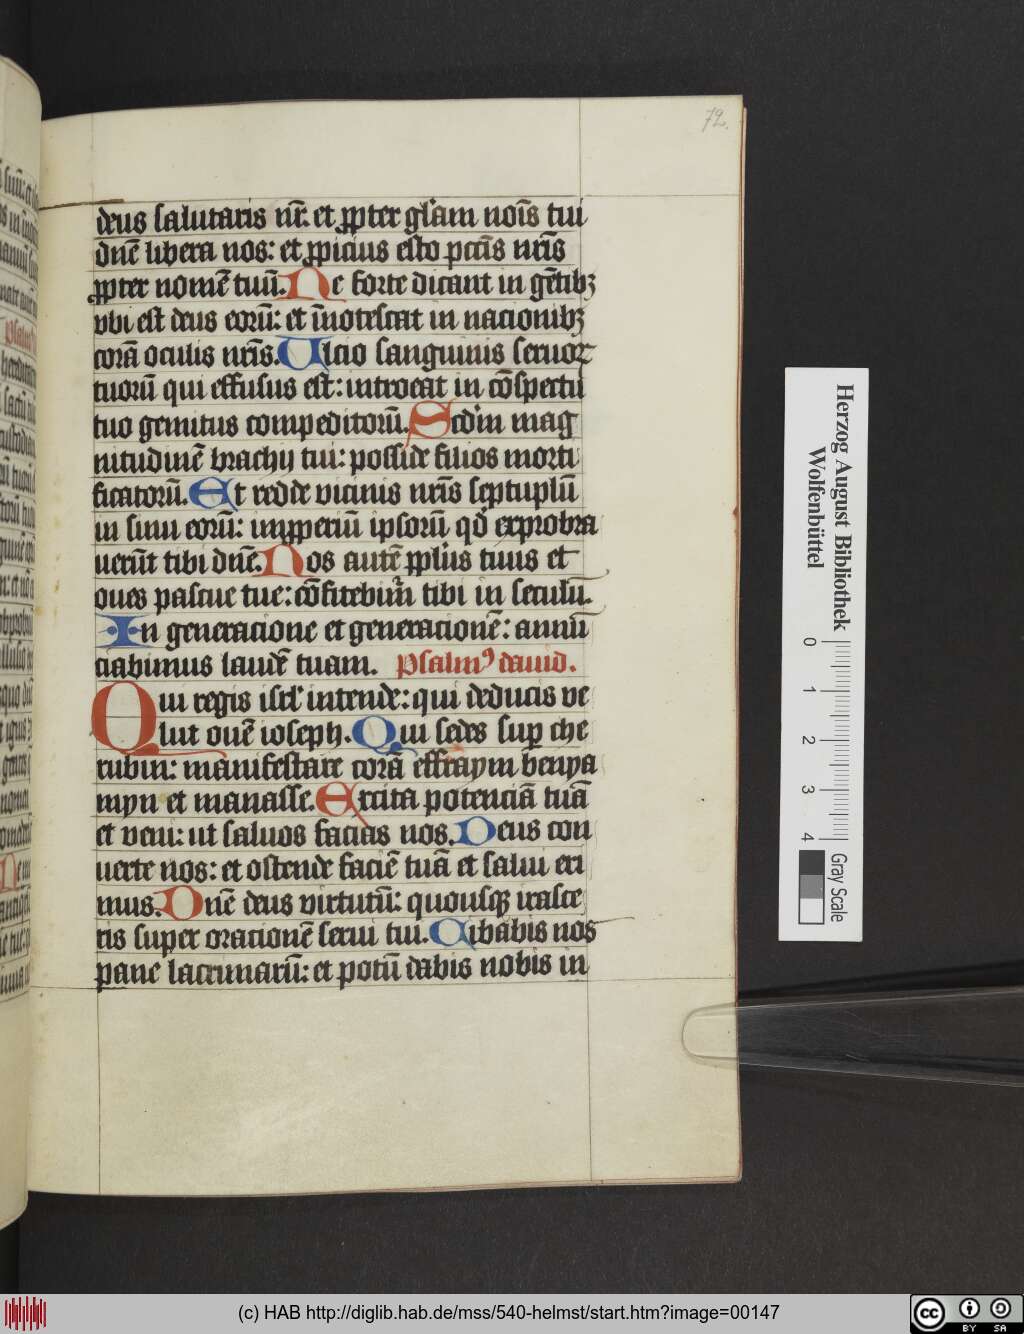 72.
deus salutaris nr̄. et ꝓpter gl'am nois̄ tui
dn̄e libera nos: et ꝓpicius esto pctīs nr̄is
ꝓpter nomē tuū. Ne forte dicant in gētibꝫ
vbi est deus eorū: et īnotescat in nacionibꝫ
corā oculis nr̄is. Ulcio sanguinis seruoꝝ
tuorū qui effusus est: introeat in cōspectu
tuo gemitus compeditorū. Scd'm mag
nitudinē brachij tui: posside filios morti
ficatorū. Et redde vicinis nr̄is septuplū
in sinu eorū: inꝓperiū ipsorū qd̄ exprobra
uerūt tibi dn̄e. Nos autē ppl'us tuus et
oues pascue tue: cōfitebim̄ tibi in seculū.
In generacione et generacionē: annū
ciabimus laudē tuam. Psalmꝰ dauid.
Qui regis isrl' intende: qui deducis ve
lut ouē ioseph. Qui sedes sup̄ che
rubin: manifestare corā effraym benya
myn et manasse. Excita potenciā tuā
et veni: ut saluos facias nos. Deus con
uerte nos: et ostende faciē tuā et salui eri
mus. Dn̄e deus virtutū: quousqꝫ irasce
ris super orationē serui tui. Cibabis nos
pane lacrimarū: et potū dabis nobis in
Herzog August Bibliothek
Wolfenbüttel
0 1 2 3 4
Gray Scale
(c) HAB http://diglib.hab.de/mss/540-helmst/start.htm?image=00147
cc BY SA